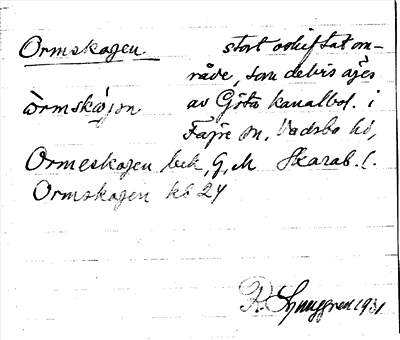 Ormskagen stort oskiftat om-
råde, som delvis äges
òrmskωjən av Göta kanalbol. i
Fägre sn, Vadsbo hd,
Ormeskogen bek, G, M Skarab. l.
Ormskagen kb 24
R. Ljunggren 1931